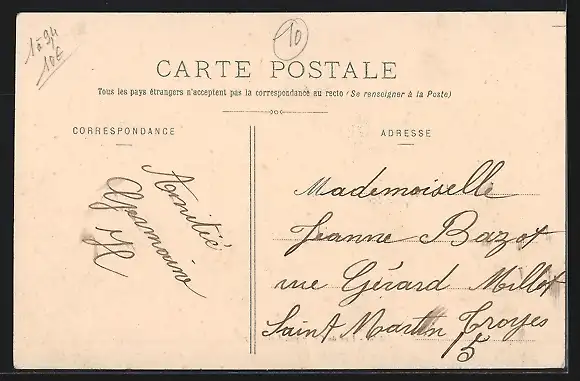 1 à 94
10€
10
CARTE POSTALE
Tous les pays étrangers n'acceptent pas la correspondance au recto (Se renseigner à la Poste)
CORRESPONDANCE
Amitié
Germaine
H
ADRESSE
Mademoiselle
Jeanne Bazot
rue Gérard Millot
Saint Martin Troyes
5